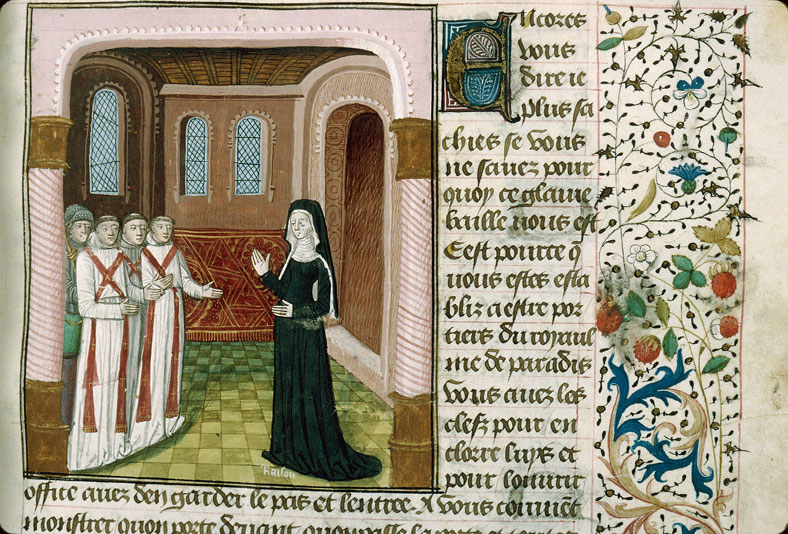 Encores
vous
dire ie
plus sa
chies se vous
ne sauez pour
quoy ce glaiue
baille vous est
Cest pource q̄
vous estes esta
bliz a estre por
tiers du royaul
me de paradis
vous auez les
clefz pour en
clorre luys et
pour louurir
Raison
office auez den garder le pas et lentree. A vous conuiēt
monstrer quon porte deuant